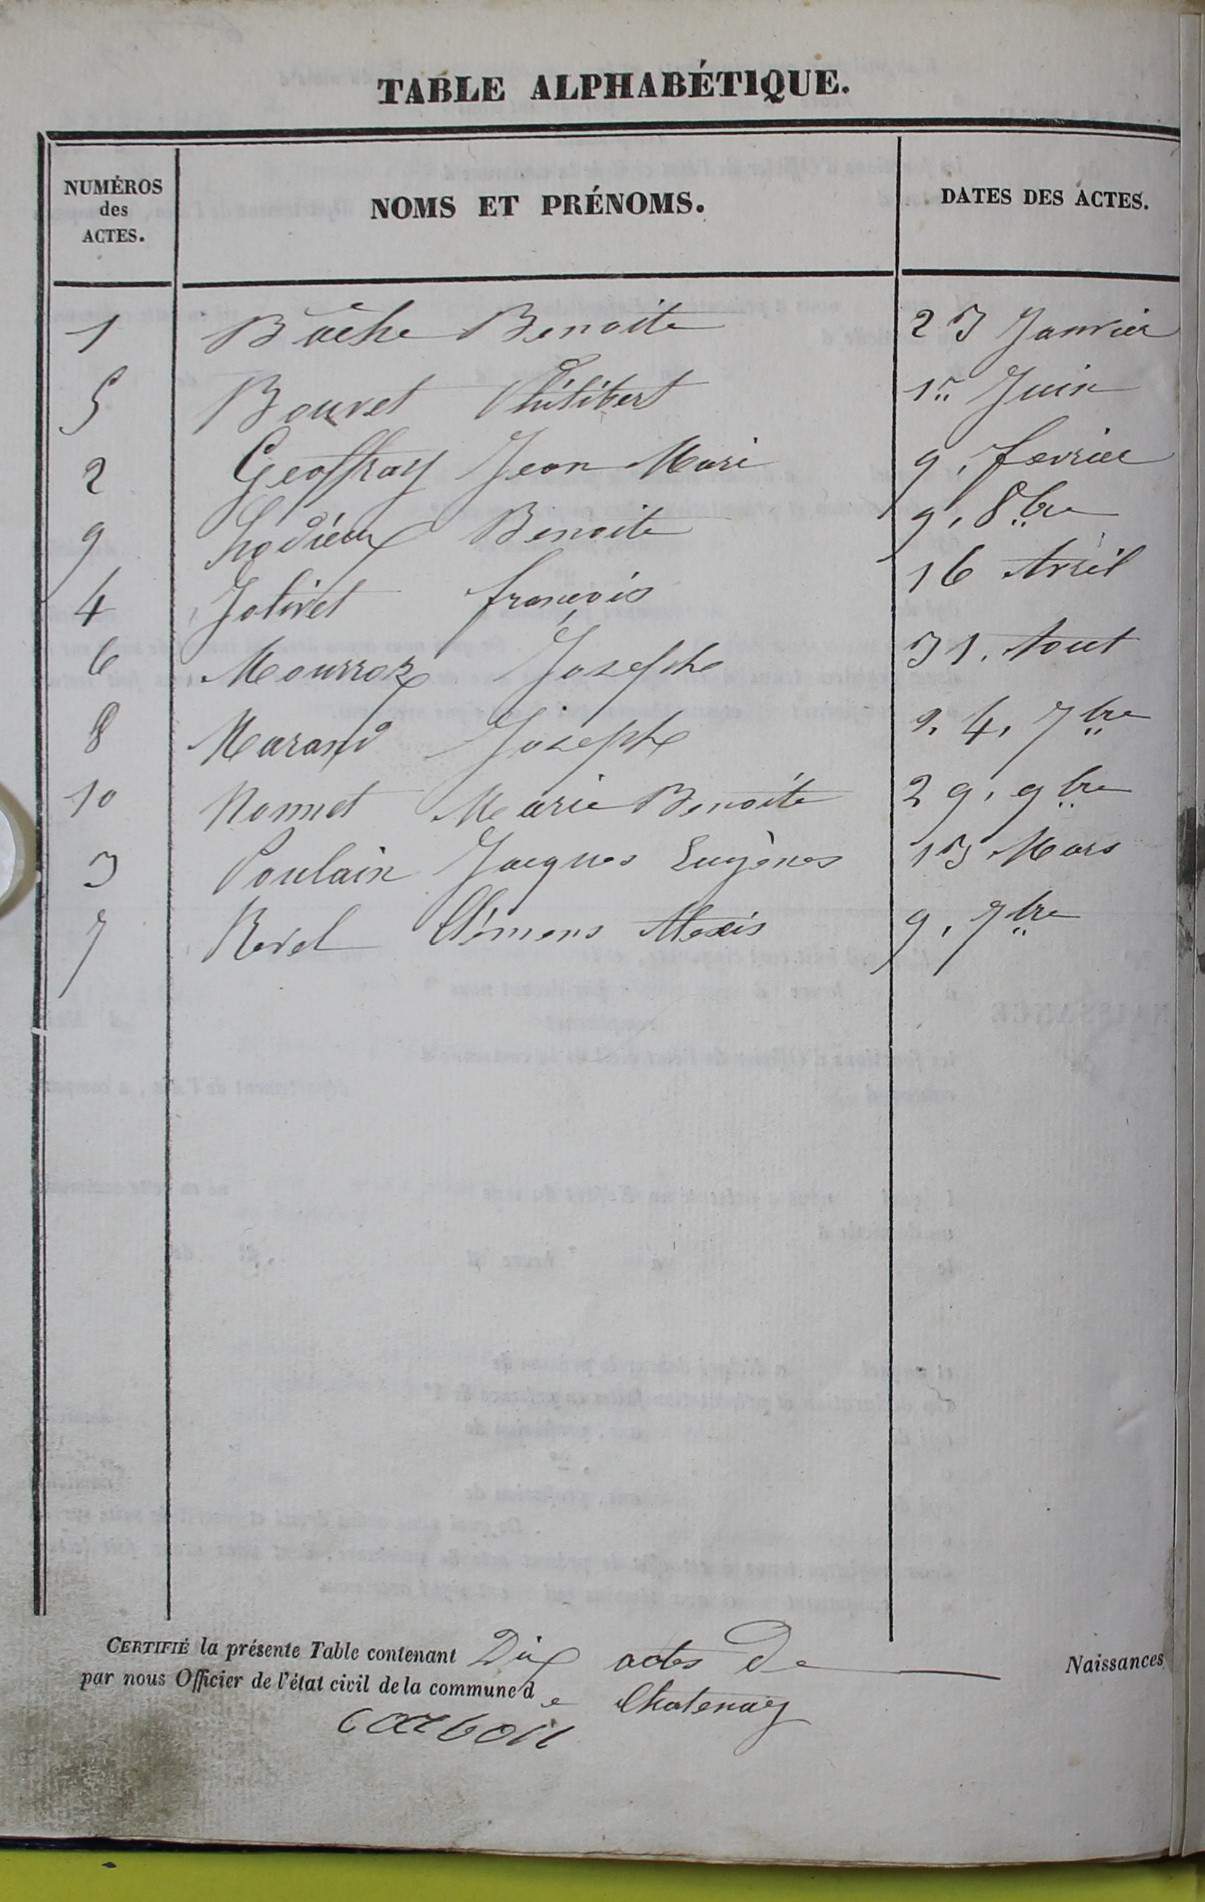 TABLE ALPHABÉTIQUE.
NUMÉROS
des
ACTES.
NOMS ET PRÉNOMS.
DATES DES ACTES.
1 Bâche Benoite 23 Janvier
5 Bouvet Philibert 1er Juin
2 Geoffray Jean Marie 9, fevrier
9 Benoite 9, 8bre
4 Jolivet françois 16 Avril
6 Mourroz Joseph 31, Aout
8 Marand Joseph 24, 7bre
10 Monnet Marie Benoite 29, 9bre
3 Poulain Jacques Eugènes 13 Mars
7 Revel Clémens Alexis 9, 7bre
CERTIFIÉ la présente Table contenant Dix actes de Naissances
par nous Officier de l'état civil de la commune de Chatenay